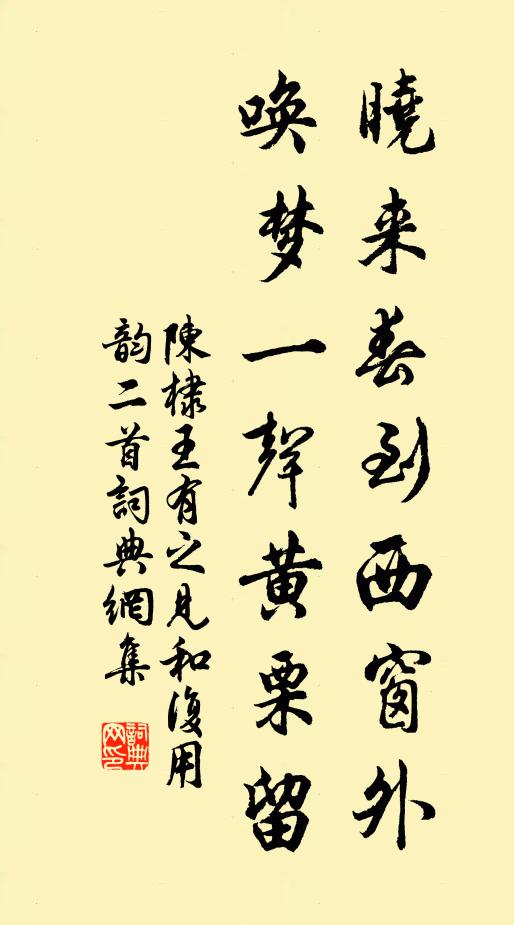 曉来春到西窗外
唤梦一聲黄栗留
陳棣王有之見和復用
韵二首詞典網集
詞典網印